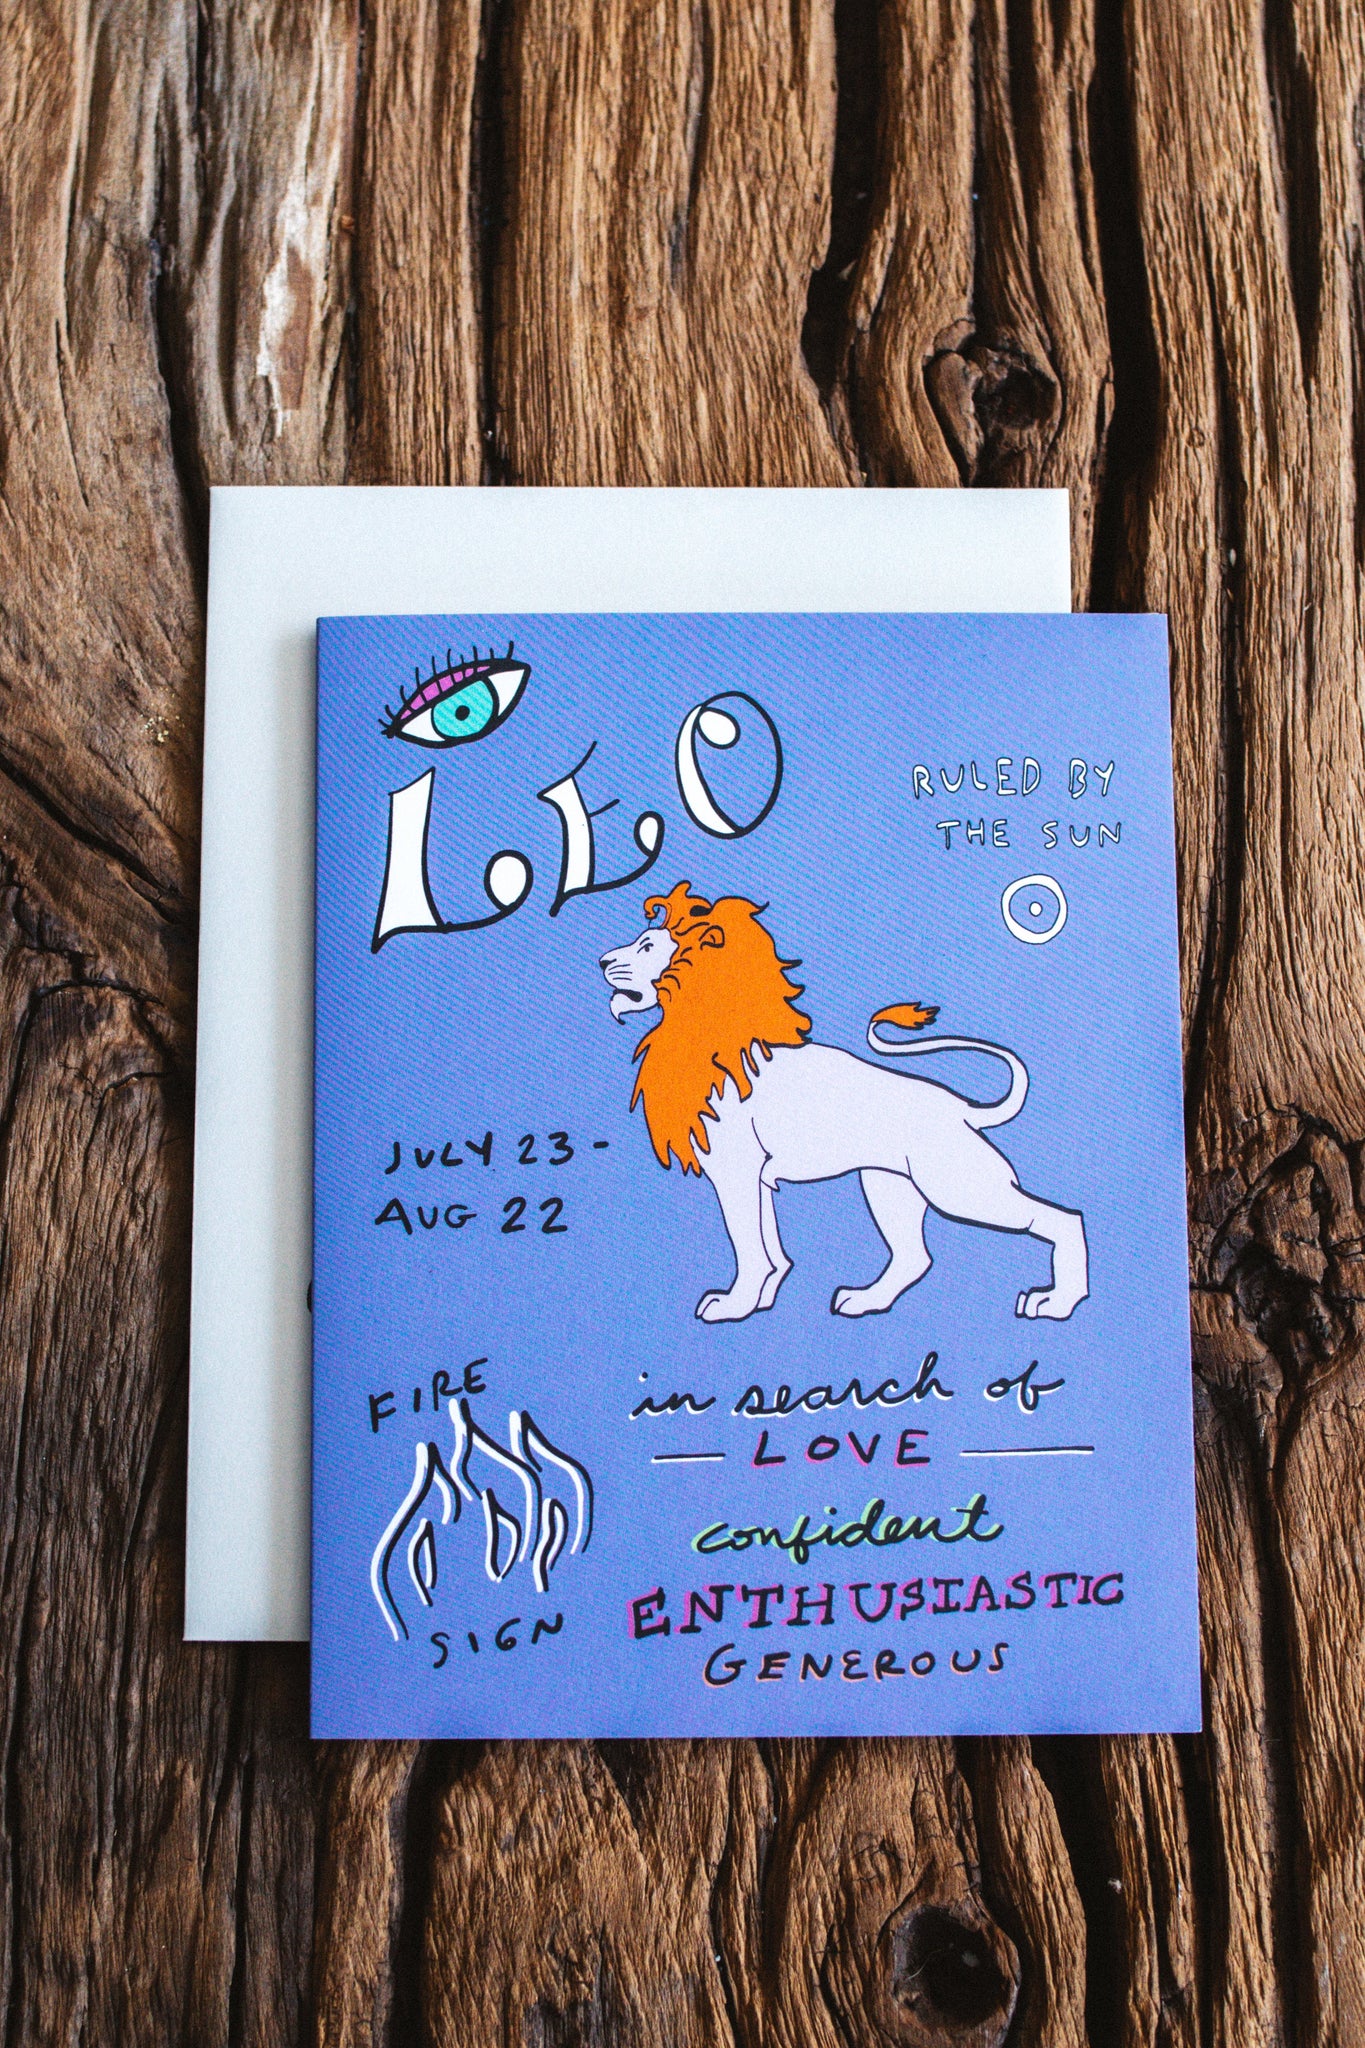 LEO
RULED BY
THE SUN
JULY 23 -
AUG 22
FIRE
SIGN
in search of
LOVE
confident
ENTHUSIASTIC
GENEROUS